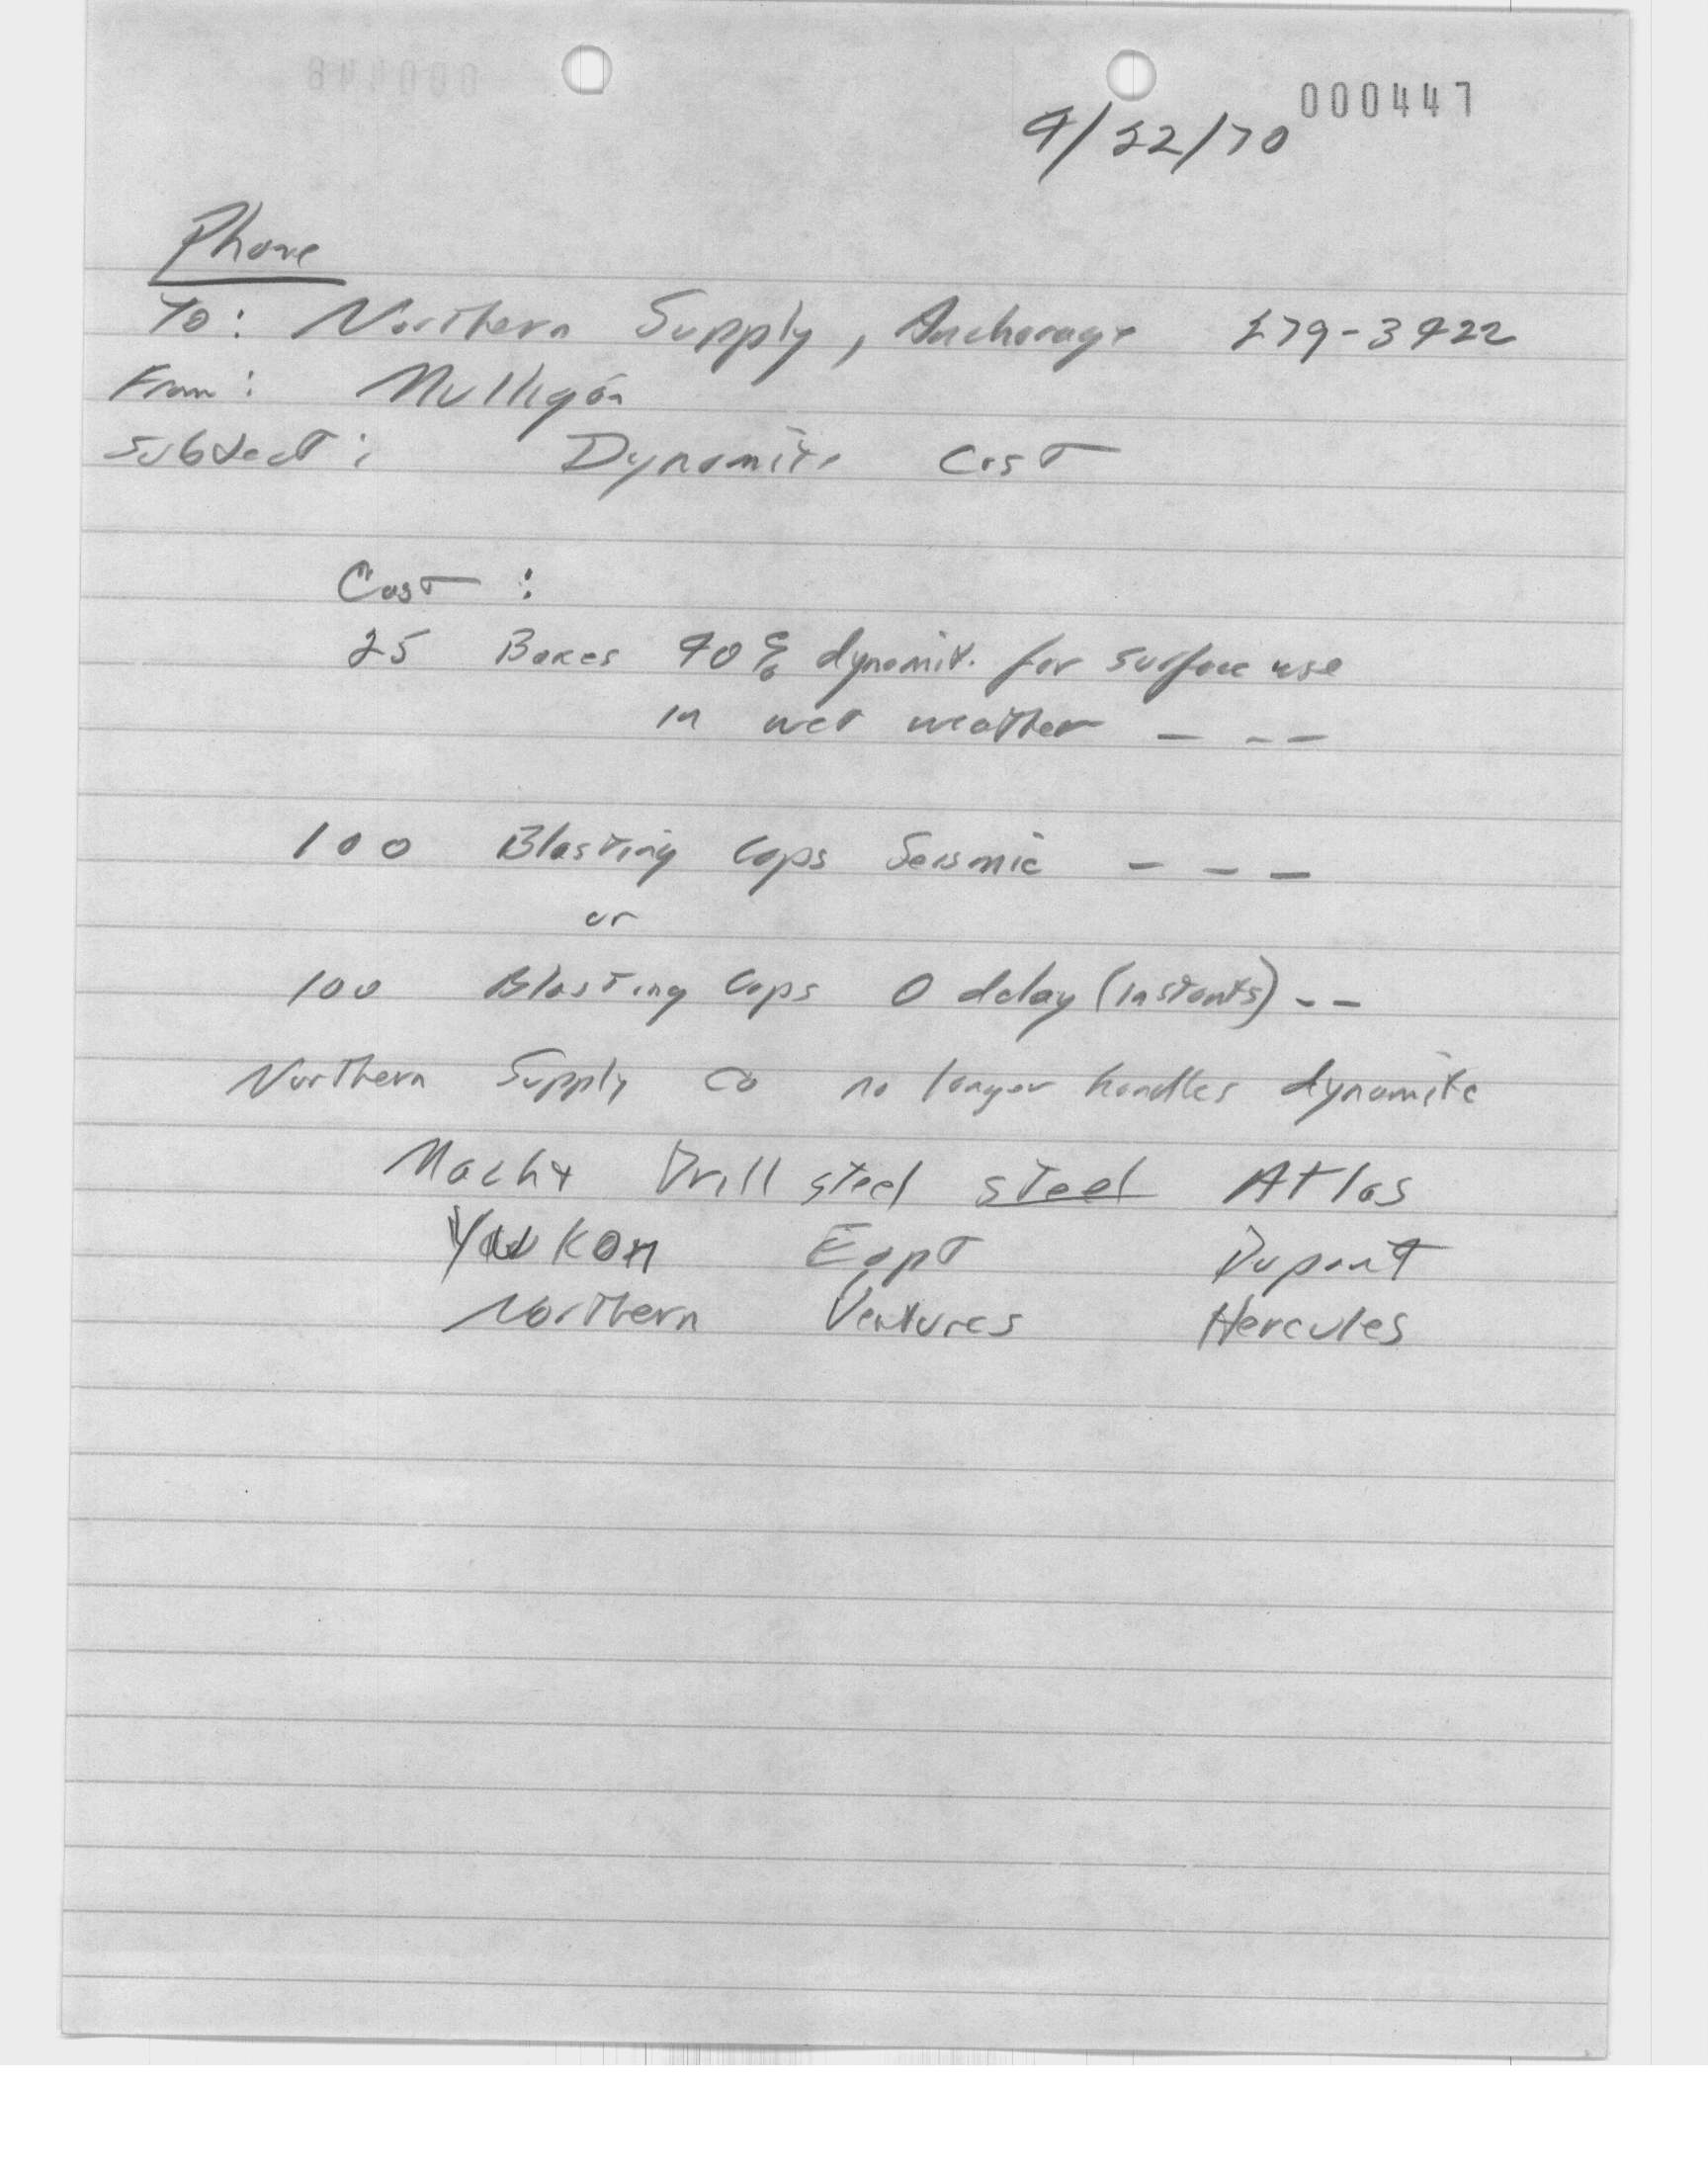 000447
4/22/70
Phone
To: Northern Supply, Anchorage 279-3422
From: Mulligan
Subject: Dynamite Cost
Cost :
25 Boxes 40% dynamite for surface use
in wet weather - - -
100 Blasting Caps Seismic - - -
or
100 Blasting Caps 0 delay (instants) - -
Northern Supply Co no longer handles dynamite
Macht Drill steel steel Atlas
Yukon Eqpt Dupont
Northern Ventures Hercules